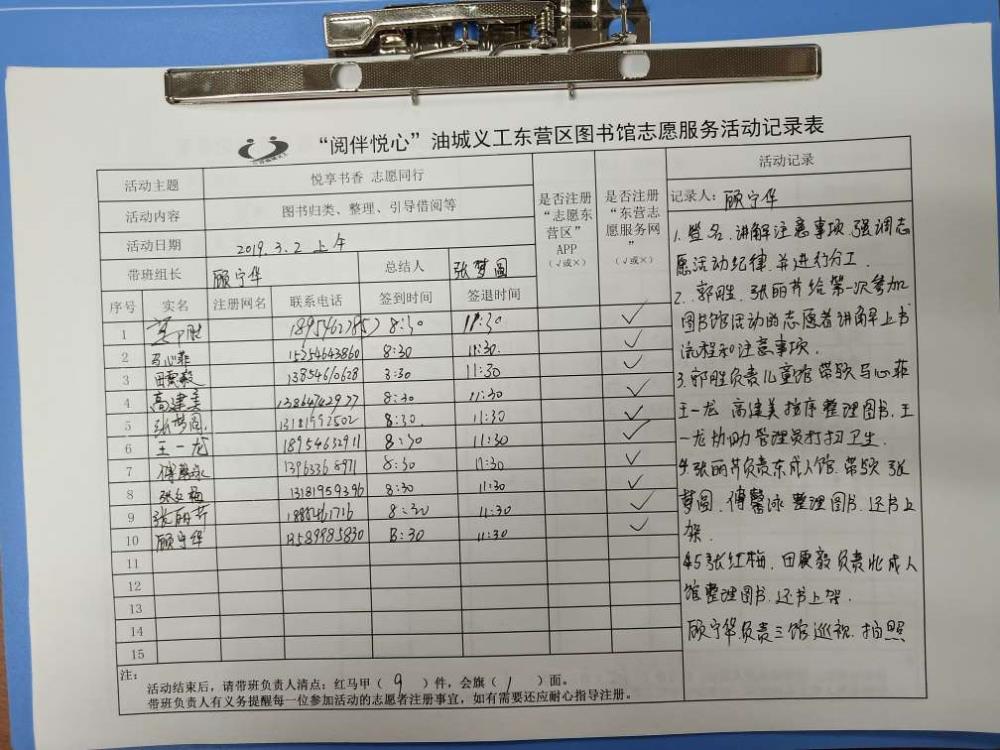 “阅伴悦心”油城义工东营区图书馆志愿服务活动记录表
活动主题 悦享书香 志愿同行
活动内容 图书归类、整理、引导借阅等
活动日期 2019.3.2 上午
带班组长 顾宁华 总结人 张梦圆
是否注册“志愿东营区”APP（√或×）
是否注册“东营志愿服务网”（√或×）
序号 实名 注册网名 联系电话 签到时间 签退时间
1 郭胜 8:30 11:30 √
2 马心菲 15254643860 8:30 11:30 √
3 田耍毅 13854610628 8:30 11:30 √
4 高建美 13864742977 8:30 11:30 √
5 张梦圆 13181992502 8:30 11:30 √
6 王一龙 18954632911 8:30 11:30 √
7 傅馨泳 13963368971 8:30 11:30 √
8 张红梅 13181959396 8:30 11:30 √
9 张丽芹 8:30 11:30 √
10 顾宁华 13589985830 8:30 11:30 √
11
12
13
14
15
活动记录
记录人：顾宁华
1.签名.讲解注意事项.强调志
愿活动纪律.并进行分工.
2.郭胜.张丽芹给第一次参加
图书馆活动的志愿者讲解上书
流程和注意事项.
3.郭胜负责儿童馆 带领马心菲
王一龙 高建美 按序整理图书.王
一龙协助管理员打扫卫生.
4.张丽芹负责东成人馆.带领 张
梦圆.傅馨泳 整理图书.还书上
架.
5张红梅.田 毅负责北成人
馆整理图书.还书上架.
顾宁华负责三馆巡视.拍照
注：
活动结束后，请带班负责人清点：红马甲（ 9 ）件，会旗（ 1 ）面。
带班负责人有义务提醒每一位参加活动的志愿者注册事宜，如有需要还应耐心指导注册。